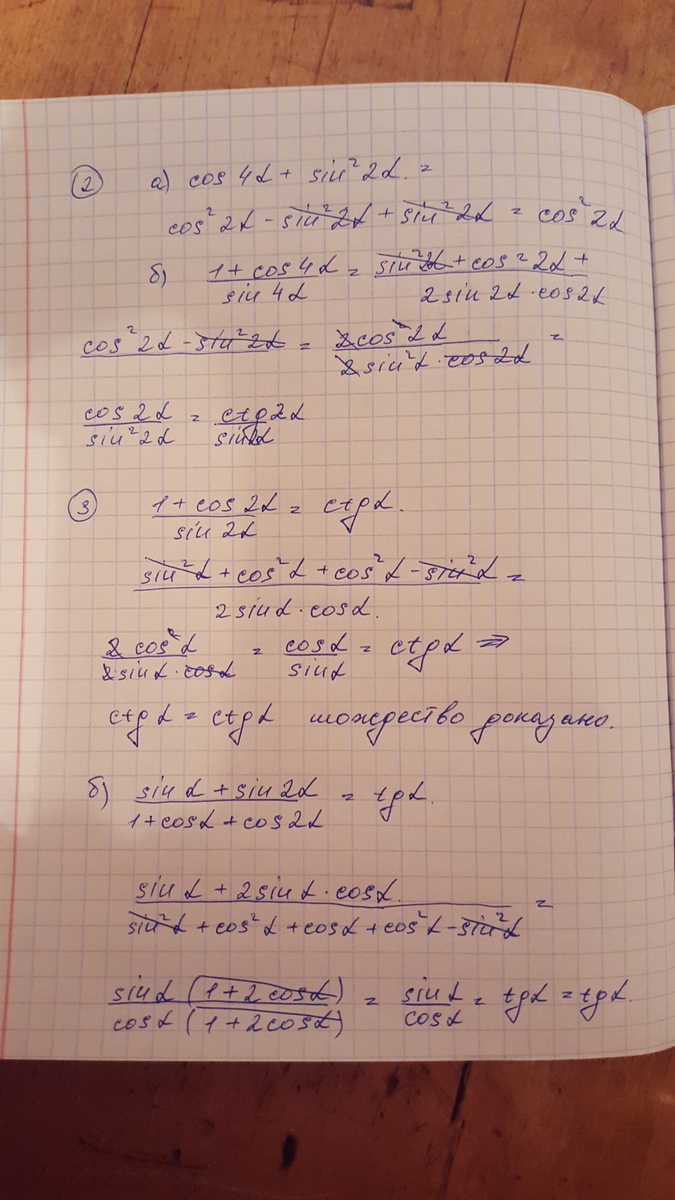 ② а) cos 4α + sin² 2α =
cos² 2α - sin² 2α + sin² 2α = cos² 2α
б) (1 + cos 4α)/(sin 4α) = (sin² 2α + cos² 2α +)/(2 sin 2α · cos 2α)
(cos² 2α - sin² 2α) = (2 cos² 2α)/(2 sin² α · cos 2α) =
(cos 2α)/(sin² 2α) = (ctg 2α)/(sin 2α)
③ (1 + cos 2α)/(sin 2α) = ctg α.
(sin² α + cos² α + cos² α - sin² α)/(2 sin α · cos α.) =
(2 cos² α)/(2 sin α · cos α) = (cos α)/(sin α) = ctg α ⇒
ctg α = ctg α тождество доказано.
б) (sin α + sin 2α)/(1 + cos α + cos 2α) = tg α.
(sin α + 2 sin α · cos α.)/(sin² α + cos² α + cos α + cos² α - sin² α) =
(sin α (1 + 2 cos α))/(cos α (1 + 2 cos α)) = (sin α)/(cos α) = tg α = tg α.